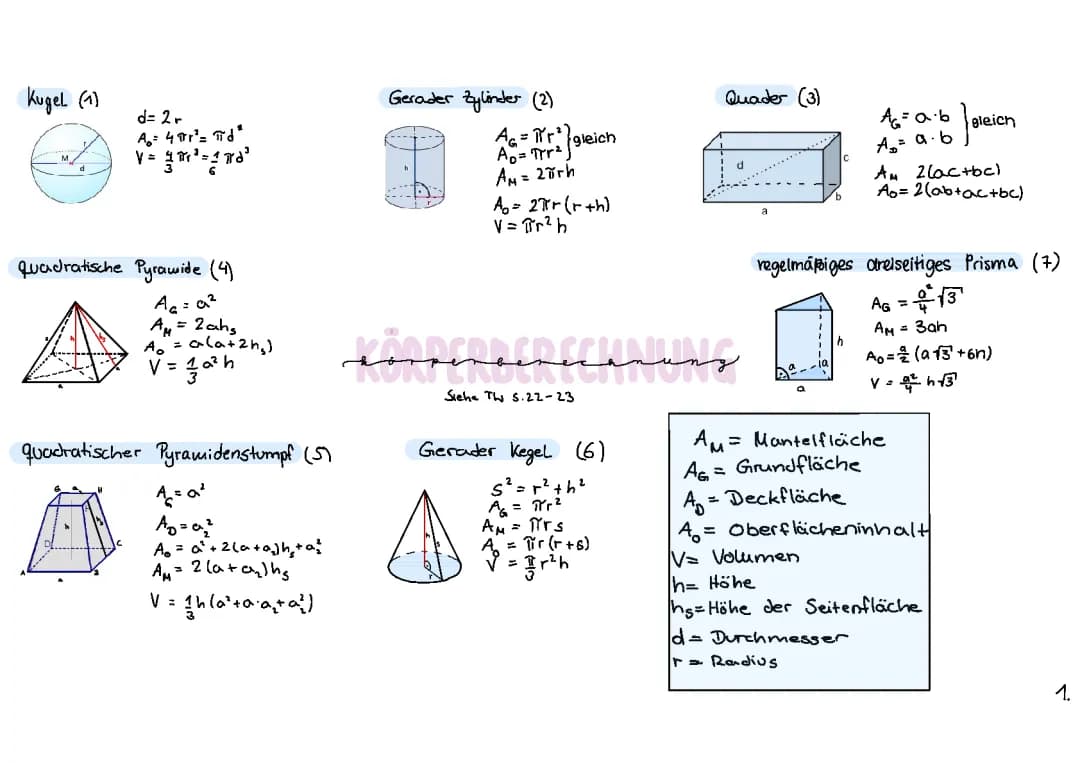 Kugel (1)
d = 2r
A₀ = 4πr² = πd²
V = 4/3 πr³ = 1/6 πd³
M
r
d
Gerader Zylinder (2)
A_G = πr² } gleich
A_D = πr²
A_M = 2πrh
A₀ = 2πr(r+h)
V = πr²h
h
r
Quader (3)
A_G = a·b } gleich
A_D = a·b
A_M 2(ac+bc)
A₀ = 2(ab+ac+bc)
d
c
b
a
quadratische Pyramide (4)
A_G = a²
A_M = 2ah_s
A₀ = a(a+2h_s)
V = 1/3 a²h
h
h_s
a
KÖRPERBERECHNUNG
körperberechnung
Siehe TW S.22-23
regelmäßiges dreiseitiges Prisma (7)
A_G = a²/4 √3
A_M = 3ah
A₀ = a/2 (a√3 + 6h)
V = a²/4 h√3
h
a
a
a
quadratischer Pyramidenstumpf (5)
A_G = a²
A_D = a₂²
A₀ = a² + 2(a+a₂)h_s + a₂²
A_M = 2(a+a₂)h_s
V = 1/3 h(a²+a·a₂+a₂²)
G
H
h
D
C
A
a
Gerader Kegel (6)
s² = r² + h²
A_G = πr²
A_M = πrs
A₀ = πr(r+s)
V = π/3 r²h
h
s
r
A_M = Mantelfläche
A_G = Grundfläche
A_D = Deckfläche
A₀ = Oberflächeninhalt
V = Volumen
h = Höhe
h_s = Höhe der Seitenfläche
d = Durchmesser
r = Radius
1.